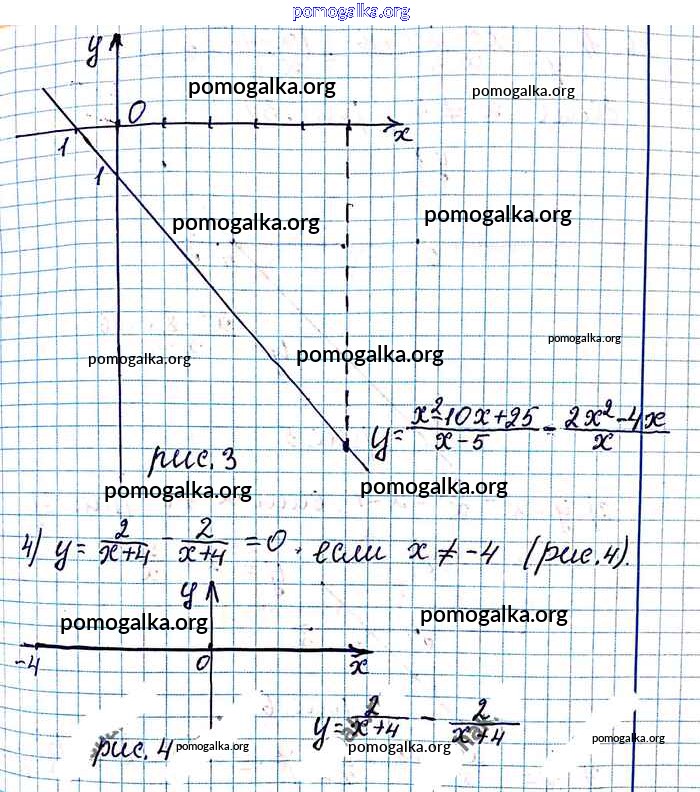 pomogalka.org
y
pomogalka.org
pomogalka.org
0
x
1
1
pomogalka.org
pomogalka.org
pomogalka.org
pomogalka.org
pomogalka.org
y = (x²-10x+25)/(x-5) - (2x²-4x)/x
рис. 3
pomogalka.org
pomogalka.org
4) y = 2/(x+4) - 2/(x+4) = 0. если x ≠ -4 (рис. 4).
y
pomogalka.org
pomogalka.org
-4 0 x
y = 2/(x+4) - 2/(x+4)
рис. 4
pomogalka.org
pomogalka.org
pomogalka.org